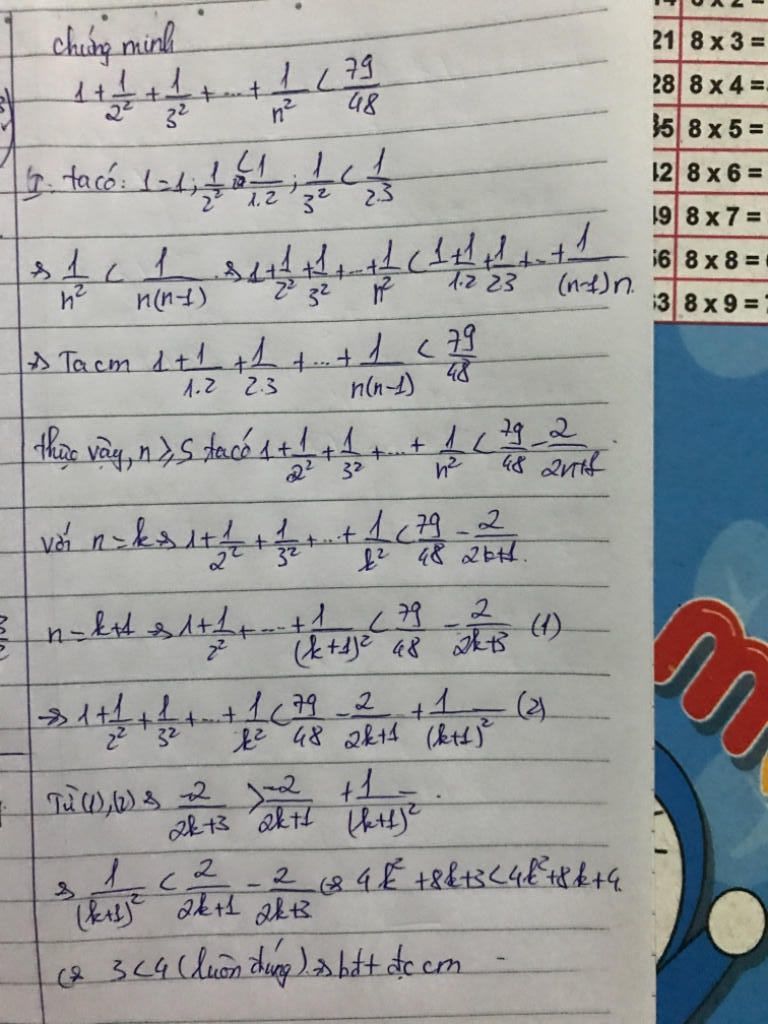 chứng minh
1 + 1/2² + 1/3² + ... + 1/n² < 79/48
G. ta có: 1 = 1; 1/2² < 1/1.2; 1/3² < 1/2.3
=> 1/n² < 1/n(n-1) => 1 + 1/2² + 1/3² + ... + 1/n² < 1 + 1/1.2 + 1/23 + ... + 1/(n-1)n.
=> Ta cm 1 + 1/1.2 + 1/2.3 + ... + 1/n(n-1) < 79/48
thực vậy, n ⩾ 5 ta có 1 + 1/2² + 1/3² + ... + 1/n² < 79/48 - 2/2n+1.
với n = k => 1 + 1/2² + 1/3² + ... + 1/k² < 79/48 - 2/2k+1.
n = k+1 => 1 + 1/2² + ... + 1/(k+1)² < 79/48 - 2/2k+3 (1)
=> 1 + 1/2² + 1/3² + ... + 1/k² < 79/48 - 2/2k+1 + 1/(k+1)² (2)
Từ (1), (2) => -2/2k+3 > -2/2k+1 + 1/(k+1)².
=> 1/(k+1)² < 2/2k+1 - 2/2k+3 <=> 4k² + 8k + 3 < 4k² + 8k + 4.
<=> 3 < 4 (luôn đúng). => bđt đc cm
21 8 x 3 =
28 8 x 4 =
35 8 x 5 =
42 8 x 6 =
49 8 x 7 =
56 8 x 8 =
63 8 x 9 =